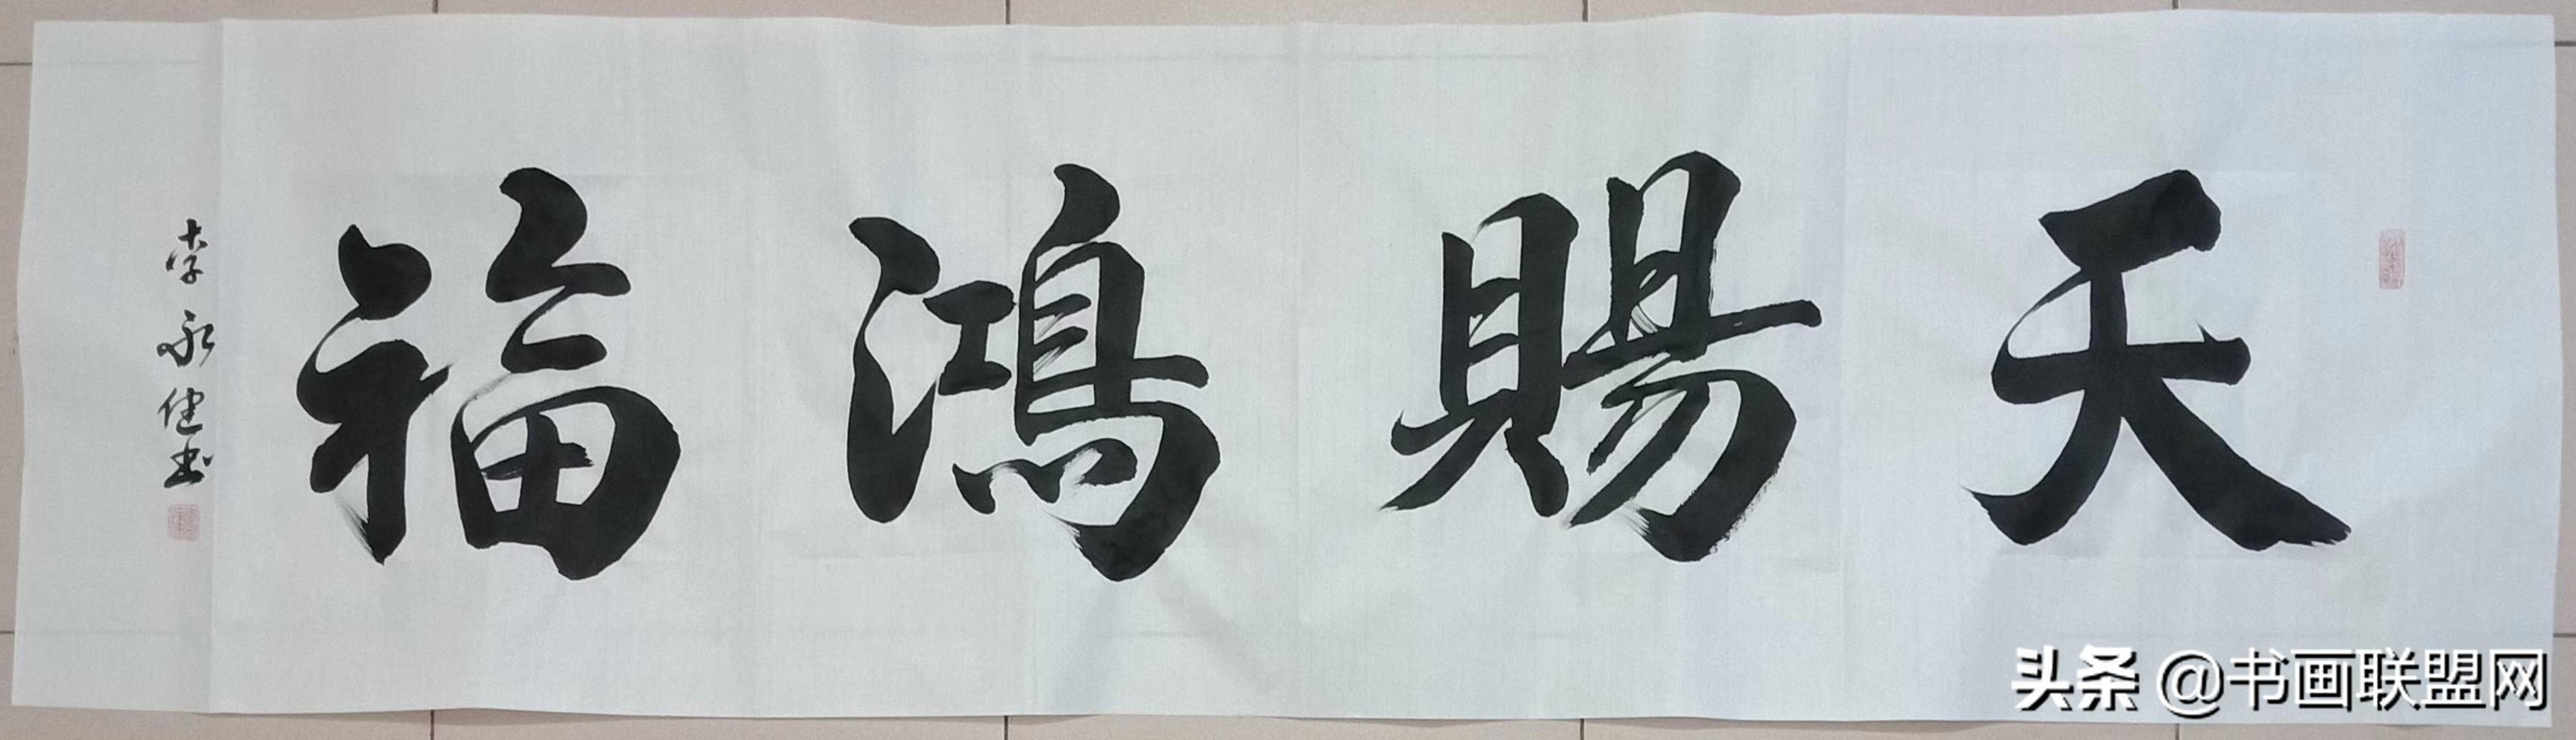 天賜鴻福
李永健书
头条 @书画联盟网